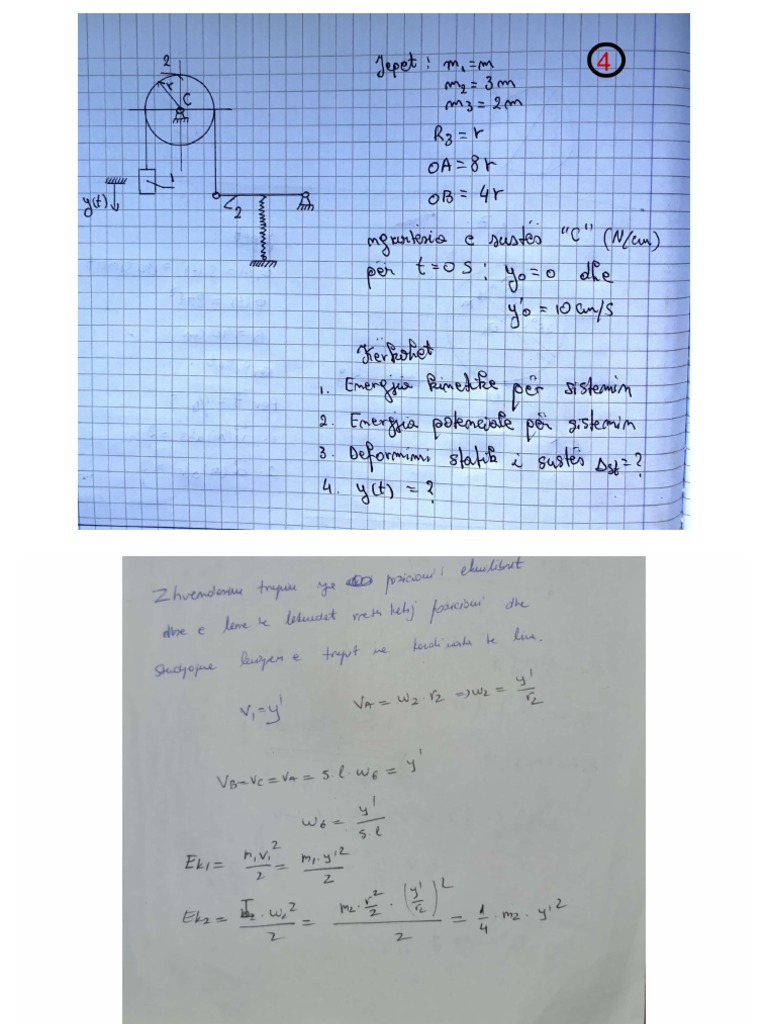 4
Jepet : m₁ = m
m₂ = 3m
m3 = 2m
R3 = r
OA = 8r
OB = 4r
ngurtësia e sustës "C" (N/cm)
për t = 0 s : y₀ = 0 dhe
y'₀ = 10 cm/s
Kërkohet
1. Energjia kinetike për sistemin
2. Energjia potenciale për sistemin
3. Deformimi statik i sustës Δst = ?
4. y(t) = ?
2
r
C
1
y(t)
2
Zhvendosim trupin nga pozicioni i ekuilibrit
dhe e leme te lekundet rreth ketij pozicioni dhe
studjojme levizjen e trupit ne kordinata te lira.
V₁ = y' VA = W₂ · r₂ => W₂ = y'/r₂
VB = VC = VA = 5.l. W6 = y'
W6 = y'/5.l
Ek₁ = m₁v₁²/2 = m₁·y'²/2
Ek₂ = I₂·W₂²/2 = m₂·r²/2·(y'/r₂)²/2 = 1/4 · m₂ · y'²